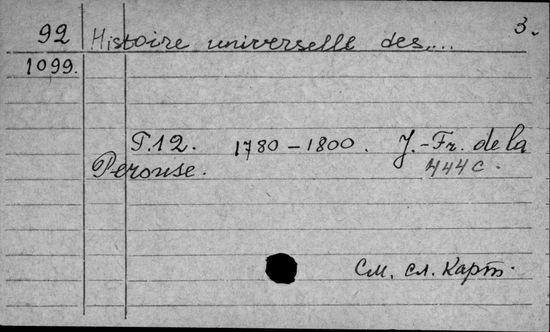 92 Histoire universelle des.... 3.
1099.
T.12. 1780-1800. J.-Fr. de la
Perouse. 444 c.
См. сл. карт.